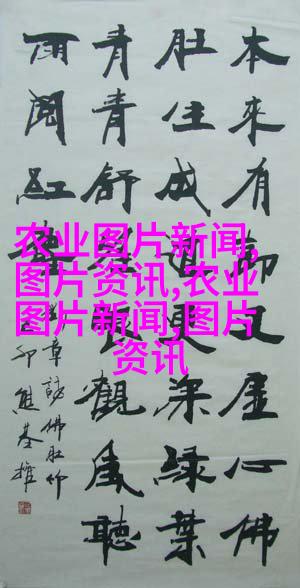 农业图片新闻,
图片资讯,农业
图片新闻,图片
资讯
本來有又虛心佛
肚生成更深綠葉
青青舒觀風聽
雨閱紅
章詠佛肚竹
卯熊基權